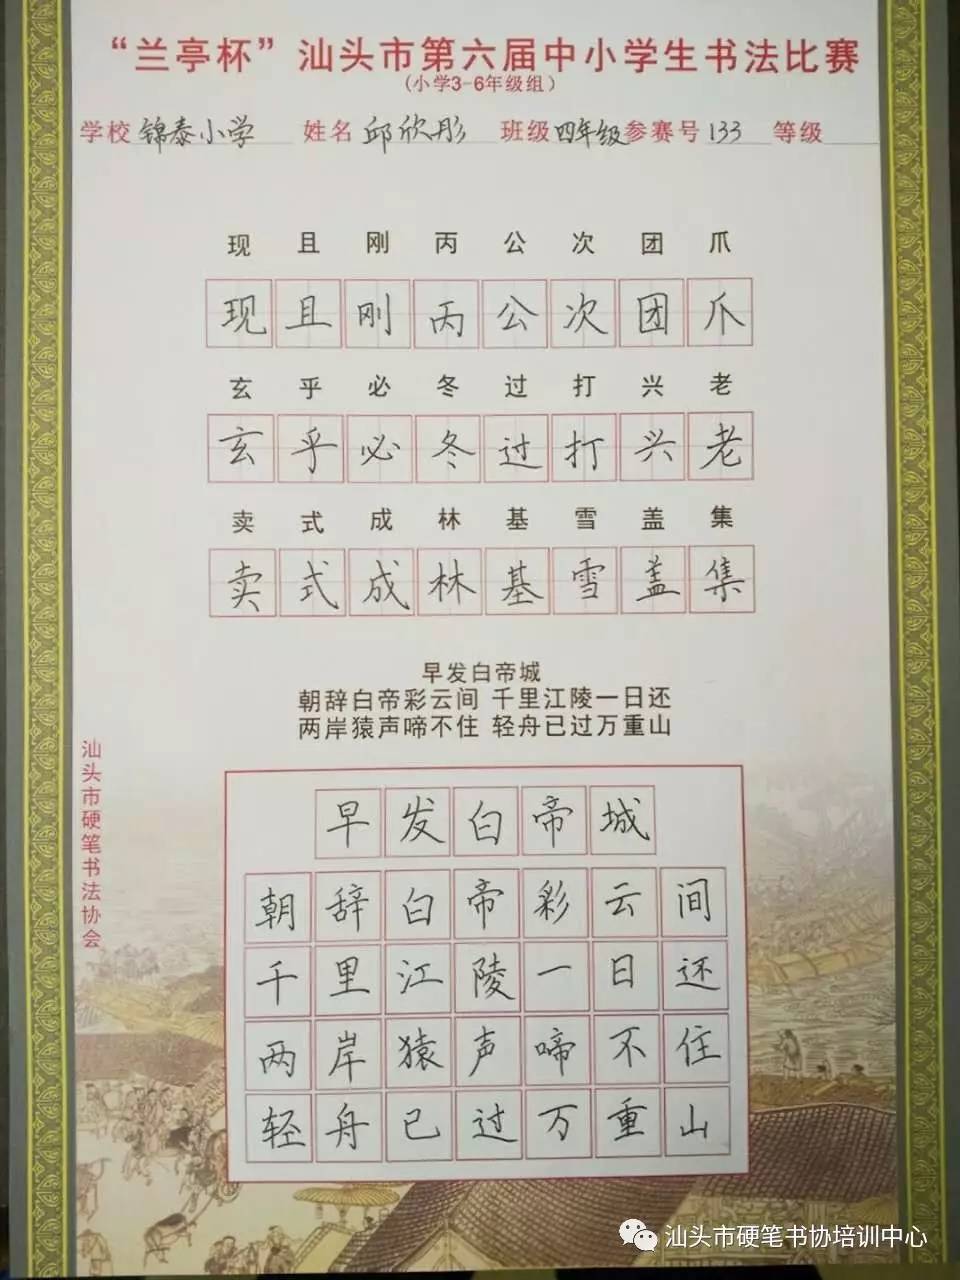 “兰亭杯”汕头市第六届中小学生书法比赛
(小学3-6年级组)
学校 锦泰小学 姓名 邱欣彤 班级 四年级 参赛号 133 等级
现 且 刚 丙 公 次 团 爪
现 且 刚 丙 公 次 团 爪
玄 乎 必 冬 过 打 兴 老
玄 乎 必 冬 过 打 兴 老
卖 式 成 林 基 雪 盖 集
卖 式 成 林 基 雪 盖 集
早发白帝城
朝辞白帝彩云间 千里江陵一日还
两岸猿声啼不住 轻舟已过万重山
早 发 白 帝 城
朝 辞 白 帝 彩 云 间
千 里 江 陵 一 日 还
两 岸 猿 声 啼 不 住
轻 舟 已 过 万 重 山
汕头市硬笔书法协会
汕头市硬笔书协培训中心